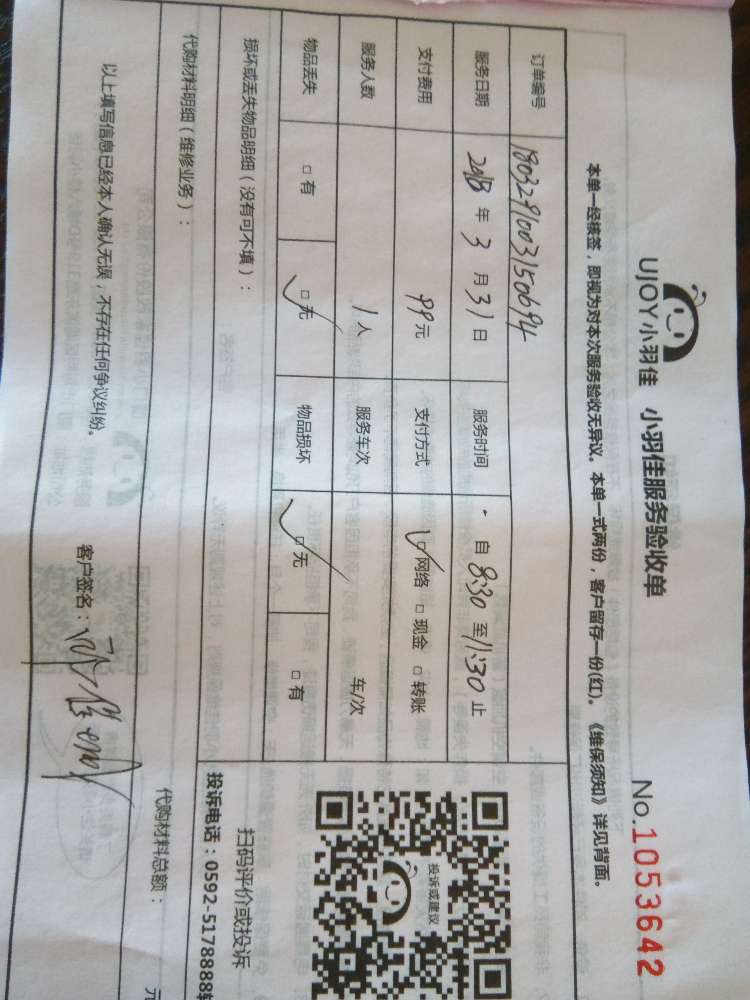 UJOY小羽佳 小羽佳服务验收单 No.1053642
本单一经核签，即视为对本次服务验收无异议。本单一式两份，客户留存一份(红)。《维保须知》详见背面。
订单编号 180329100315069４
服务日期 2018年3月31日 服务时间 自8:30至11:30止
支付费用 99元 支付方式 ☑网络 □现金 □转账
服务人数 1人 服务车次 车/次
物品丢失 □有 ☑无 物品损坏 ☑无 □有
损坏或丢失物品明细（没有可不填）：
投诉或建议
扫码评价或投诉
投诉电话：0592-5178888转
代购材料明细（维修业务）：
代购材料总额： 元
以上填写信息已经本人确认无误，不存在任何争议纠纷。
客户签名：